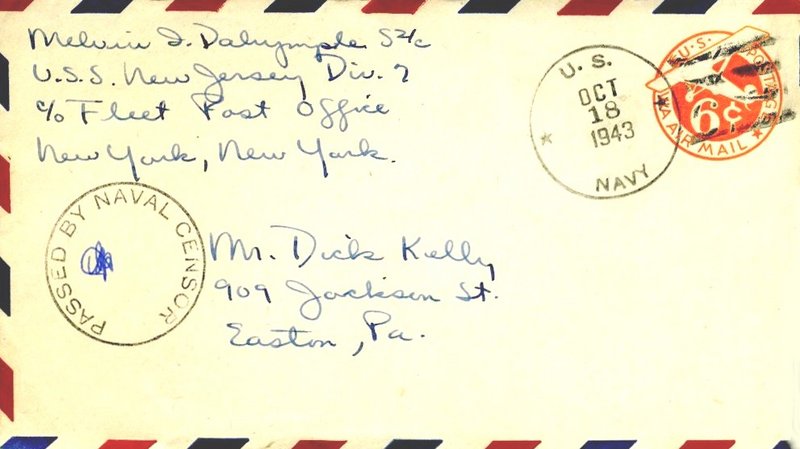 Melvin I. Dalrymple S2/c
U.S.S. New Jersey, Div. 7
c/o Fleet Post Office
New York, New York.
U.S.
OCT
18
1943
NAVY
U.S. POSTAGE
6¢
VIA AIR MAIL
PASSED BY NAVAL CENSOR
Mr. Dick Kelly
909 Jackson St.
Easton, Pa.